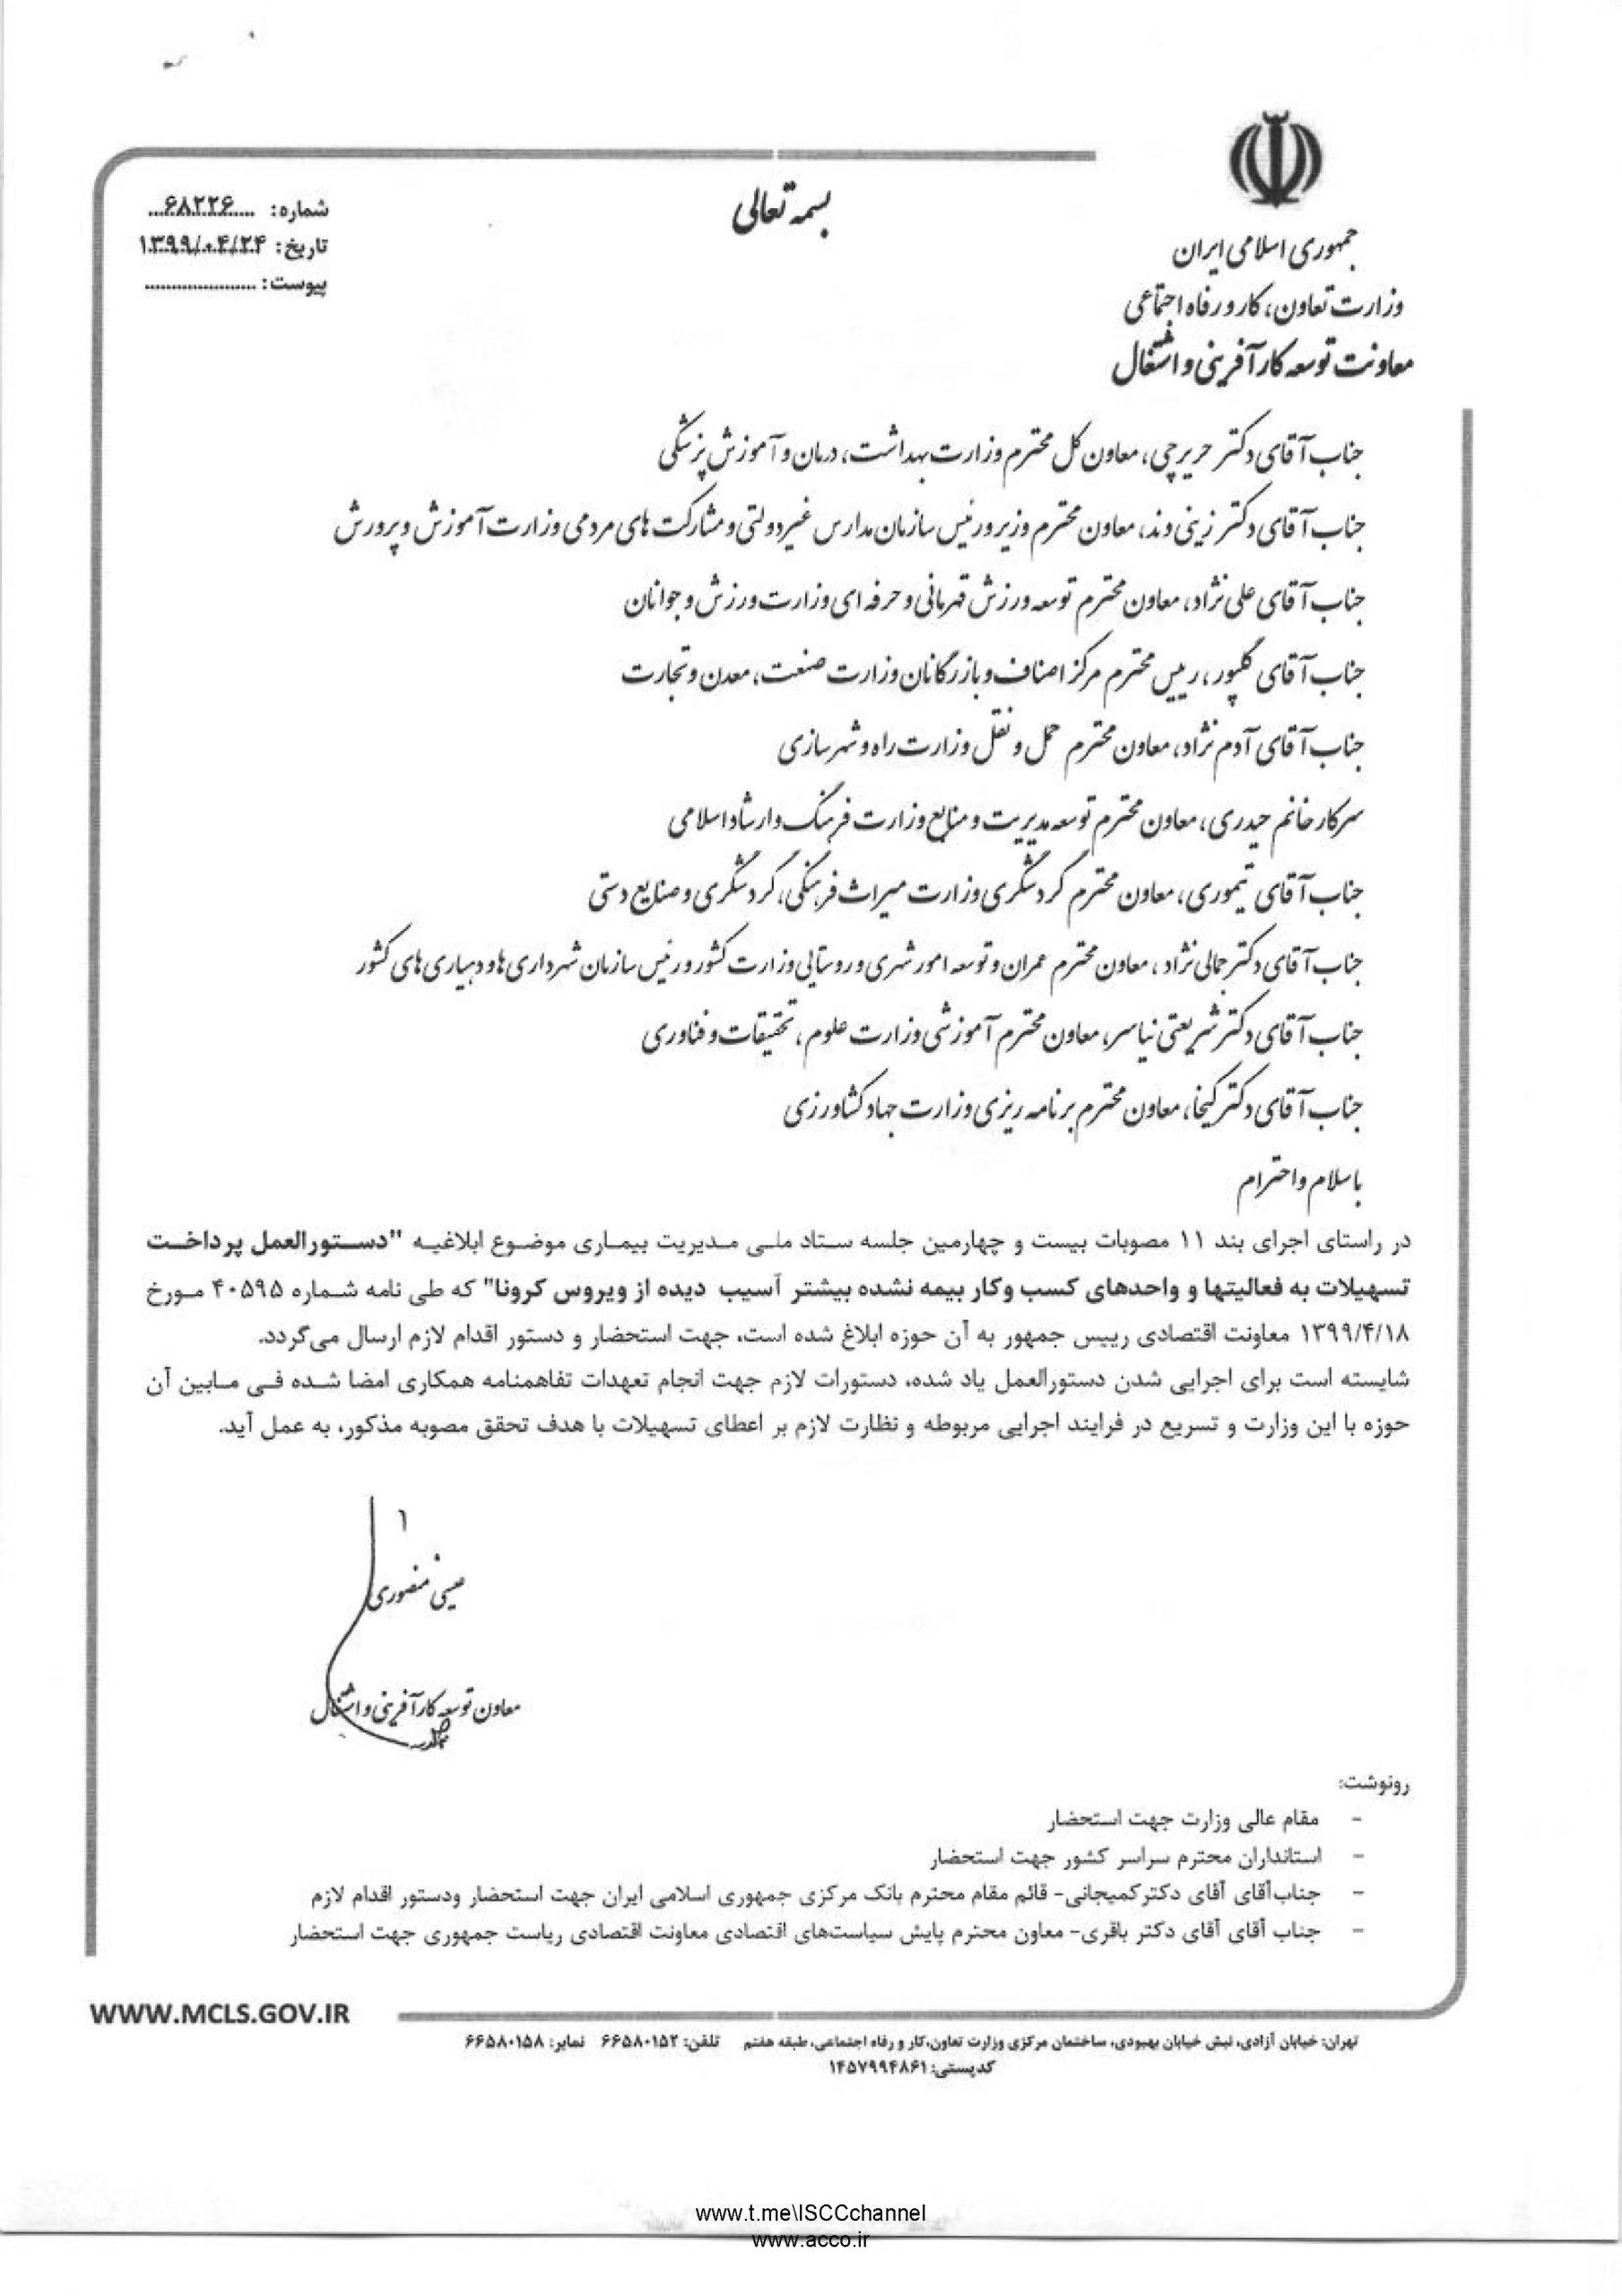 بسمه تعالی
جمهوری اسلامی ایران
وزارت تعاون، کار و رفاه اجتماعی
معاونت توسعه کارآفرینی و اشتغال
شماره: ۶۸۲۲۶
تاریخ: ۱۳۹۹/۰۴/۲۴
پیوست: ......................
جناب آقای دکتر حریرچی، معاون کل محترم وزارت بهداشت، درمان و آموزش پزشکی
جناب آقای دکتر زینی وند، معاون محترم وزیر و رئیس سازمان مدارس غیردولتی و مشارکت های مردمی وزارت آموزش و پرورش
جناب آقای علی نژاد، معاون محترم توسعه ورزش قهرمانی و حرفه ای وزارت ورزش و جوانان
جناب آقای گلپور، رییس محترم مرکز اصناف و بازرگانان وزارت صنعت، معدن و تجارت
جناب آقای آدم نژاد، معاون محترم حمل و نقل وزارت راه و شهرسازی
سرکار خانم حیدری، معاون محترم توسعه مدیریت و منابع وزارت فرهنگ و ارشاد اسلامی
جناب آقای تیموری، معاون محترم گردشگری وزارت میراث فرهنگی، گردشگری و صنایع دستی
جناب آقای دکتر جمالی نژاد، معاون محترم عمران و توسعه امور شهری و روستایی وزارت کشور و رئیس سازمان شهرداری ها و دهیاری های کشور
جناب آقای دکتر شریعتی نیاسر، معاون محترم آموزشی وزارت علوم، تحقیقات و فناوری
جناب آقای دکتر کیخا، معاون محترم برنامه ریزی وزارت جهاد کشاورزی
با سلام و احترام
در راستای اجرای بند ۱۱ مصوبات بیست و چهارمین جلسه ستاد ملی مدیریت بیماری موضوع ابلاغیه "دستورالعمل پرداخت
تسهیلات به فعالیتها و واحدهای کسب وکار بیمه نشده بیشتر آسیب دیده از ویروس کرونا" که طی نامه شماره ۴۰۵۹۵ مورخ
۱۳۹۹/۴/۱۸ معاونت اقتصادی رییس جمهور به آن حوزه ابلاغ شده است، جهت استحضار و دستور اقدام لازم ارسال می‌گردد.
شایسته است برای اجرایی شدن دستورالعمل یاد شده، دستورات لازم جهت انجام تعهدات تفاهمنامه همکاری امضا شده فی مابین آن
حوزه با این وزارت و تسریع در فرایند اجرایی مربوطه و نظارت لازم بر اعطای تسهیلات با هدف تحقق مصوبه مذکور، به عمل آید.
عیسی منصوری
معاون توسعه کارآفرینی و اشتغال
رونوشت:
- مقام عالی وزارت جهت استحضار
- استانداران محترم سراسر کشور جهت استحضار
- جناب‌آقای آقای دکترکمیجانی- قائم مقام محترم بانک مرکزی جمهوری اسلامی ایران جهت استحضار ودستور اقدام لازم
- جناب آقای آقای دکتر باقری- معاون محترم پایش سیاست‌های اقتصادی معاونت اقتصادی ریاست جمهوری جهت استحضار
WWW.MCLS.GOV.IR
تهران: خیابان آزادی، نبش خیابان بهبودی، ساختمان مرکزی وزارت تعاون،کار و رفاه اجتماعی، طبقه هفتم تلفن: ۶۶۵۸۰۱۵۲ نمابر: ۶۶۵۸۰۱۵۸
کدپستی: ۱۴۵۷۹۹۴۸۶۱
www.t.me\ISCCchannel
www.acco.ir